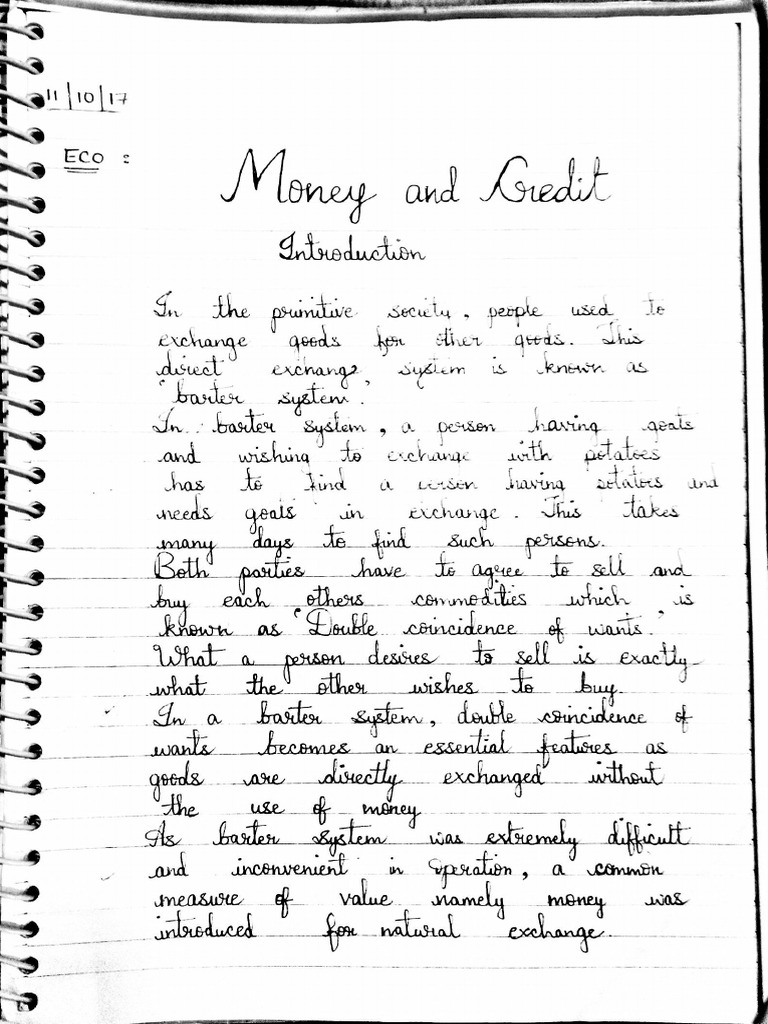 11/10/17
ECO :
Money and Credit
Introduction
In the primitive society, people used to
exchange goods for other goods. This
direct exchange system is known as
'barter system'.
In barter system, a person having goats
and wishing to exchange with potatoes
has to find a person having potatoes and
needs goats in exchange. This takes
many days to find such persons.
Both parties have to agree to sell and
buy each others commodities which is
known as 'Double coincidence of wants.'
What a person desires to sell is exactly
what the other wishes to buy.
In a barter system, double coincidence of
wants becomes an essential features as
goods are directly exchanged without
the use of money
As barter system was extremely difficult
and inconvenient in operation, a common
measure of value namely money was
introduced for natural exchange.